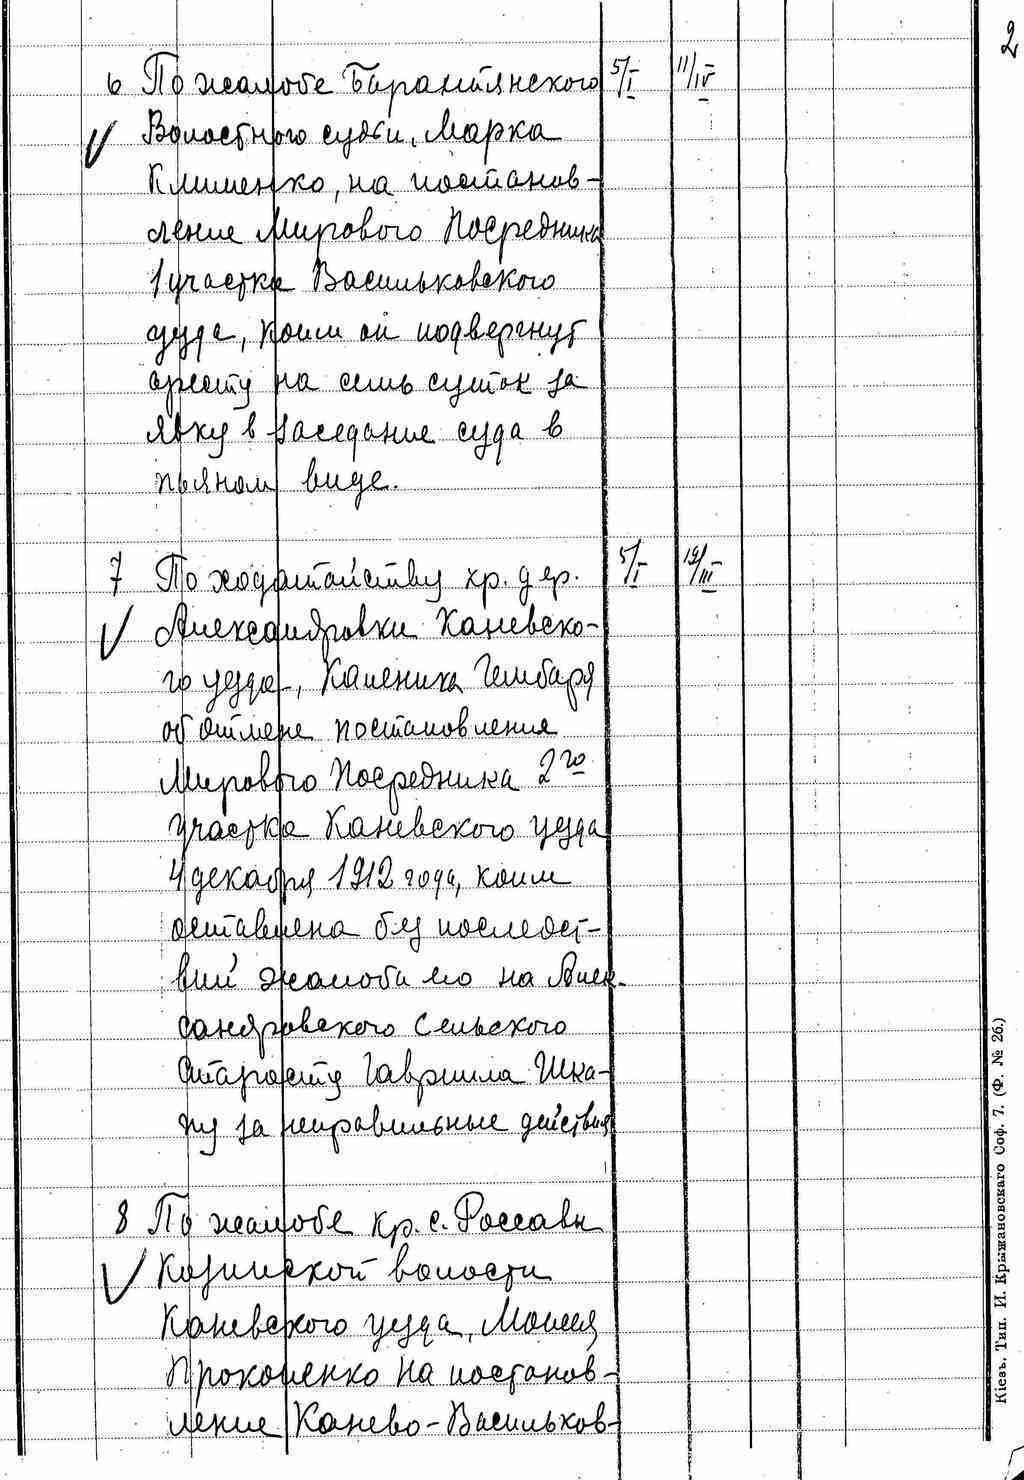 2
6 По жалобе Барахтянского 5/I 11/IV
Волостного судьи, Марка
Клименко, на постанов-
ление Мирового Посредника
1 участка Васильковского
уезда, коим он подвергнут
аресту на семь суток за
явку в заседание суда в
пьяном виде.
7 По ходатайству кр. дер. 5/I 19/III
Александровки Каневско-
го уезда, Каленика Гембаря
об отмене постановления
Мирового Посредника 2го
участка Каневского уезда
4 декабря 1912 года, коим
оставлена без последст-
вий жалоба его на Алек-
сандровского Сельского
Старосту Гавриила Шка-
пу за неправильные действия
8 По жалобе кр. с. Россавы
Козинской волости
Каневского уезда, Моисея
Прокопенко на постанов-
ление Канево-Васильков-
Кіевъ. Тип. И. Крыжановскаго Соф. 7. (Ф. № 26.)